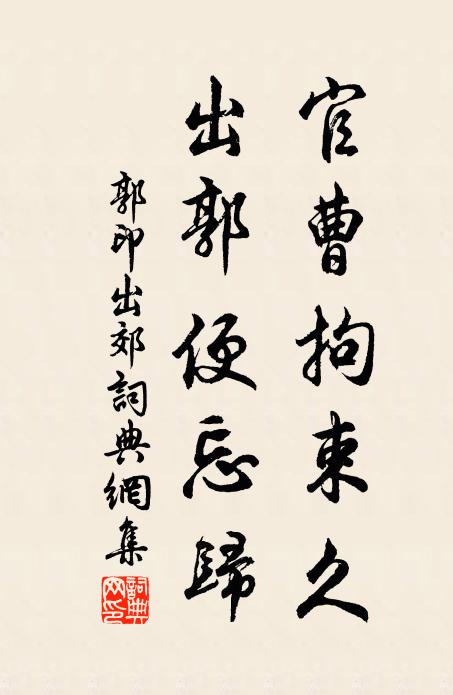 官曹拘束久
出郭便忘歸
郭印出郊詞典網集
詞典网印